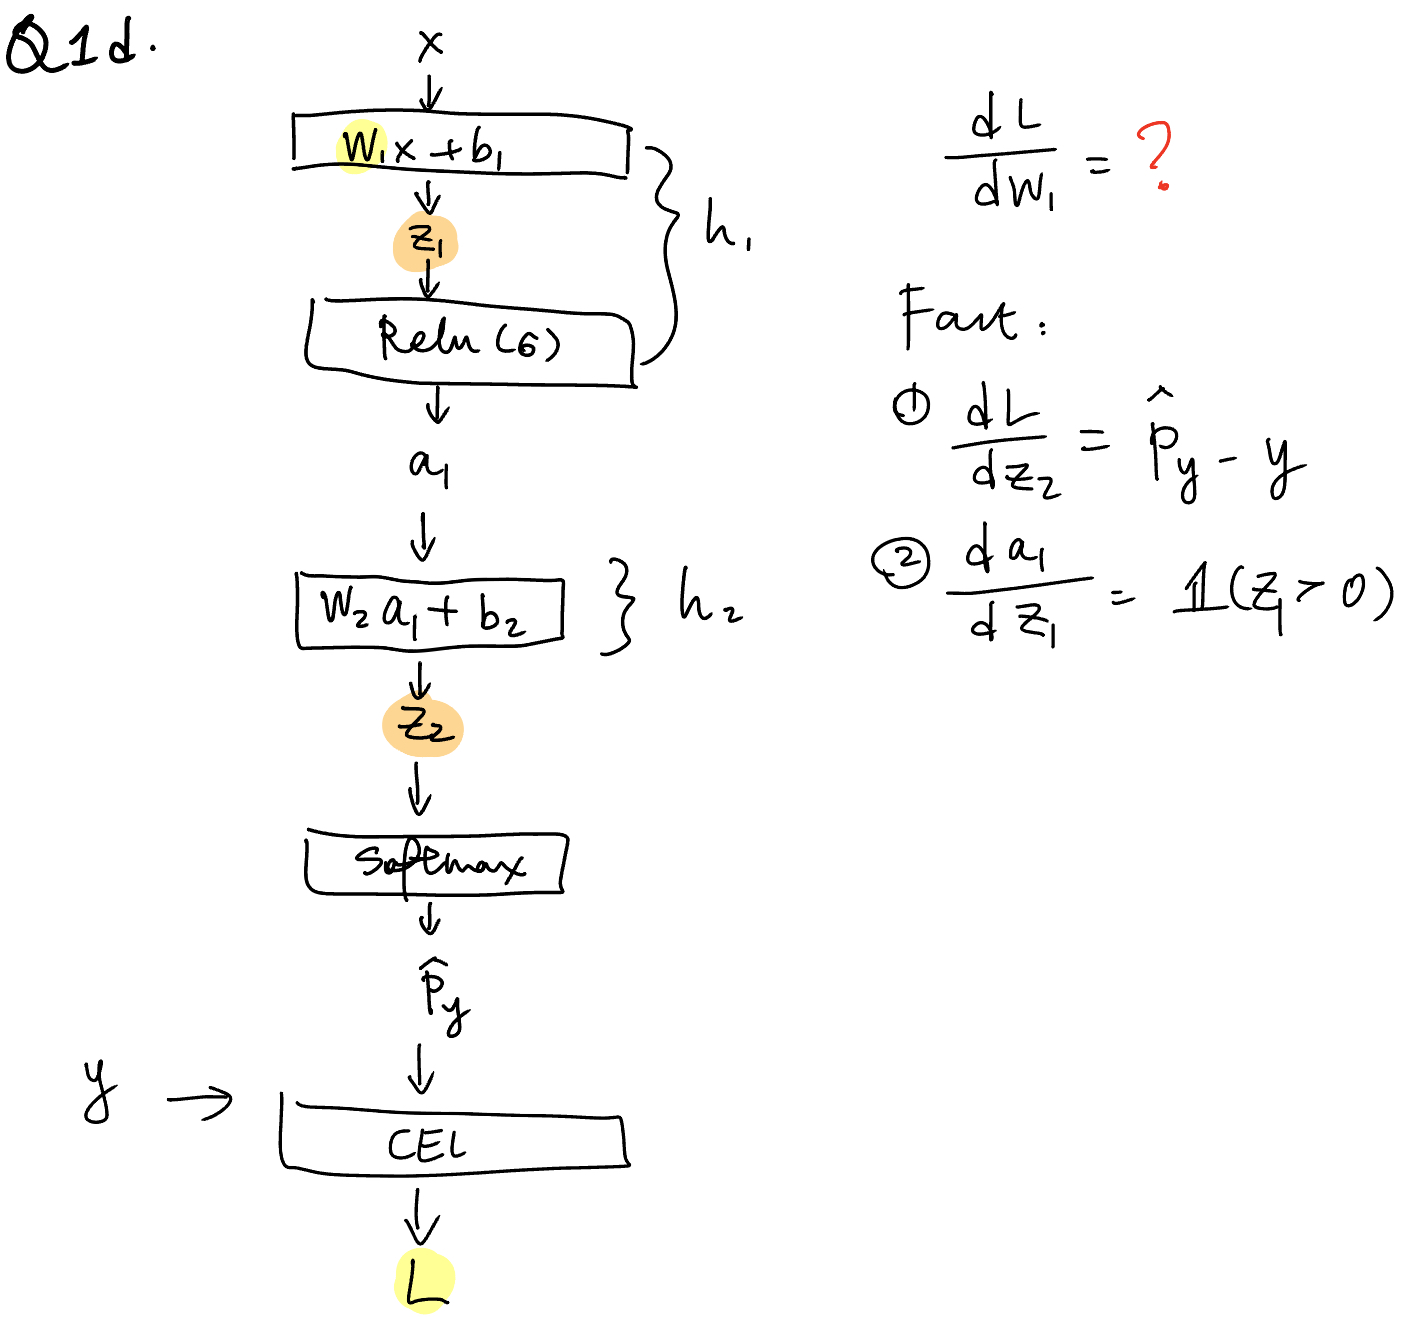 Q1d.
x
W₁x + b₁
z₁
h₁
Relu (6)
a₁
W₂ a₁ + b₂
h₂
z₂
Softmax
p̂y
y →
CEL
L
dL/dW₁ = ?
Fact:
① dL/dz₂ = p̂y - y
② da₁/dz₁ = 𝟙(z₁ > 0)